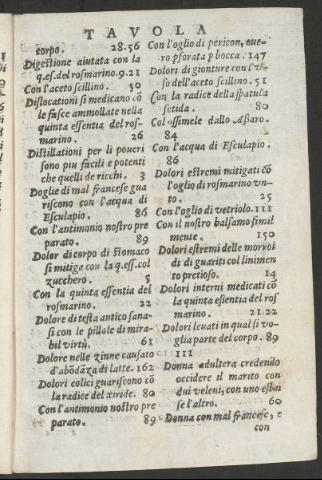 TAVOLA
corpo. 28.56
Digestione aiutata con la
q.es.del rosmarino.9.21
Con l'aceto scillino. 50
Dislocationi si medicano cõ
le fasce ammollate nella
quinta essentia del ros-
marino. 26
Distillationi per li poueri
sono piu facili e potenti
che quelli de ricchi. 3
Doglie di mal francese gua
riscono con l'acqua di
Esculapio. 86
Con l'antimonio nostro pre
parato. 89
Dolor di corpo di stomaco
si mitiga con la q.ess.col
zucchero. 5
Con la quinta essentia del
rosmarino. 22
Dolore di testa antico sana-
si con le pillole di mira-
bil virtù. 61
Dolore nelle zinne causato
d'abõdãza di latte. 162
Dolori colici guariscono cõ
la radice del xiride. 80
Con l'antimonio nostro pre
parato. 89
Con l'oglio di pericon, oue-
ro presa p bocca . 147
Dolori di gionture con l'v-
so dell'aceto scillino. 51
Con la radice della spatula
fetida. 80
Col ossimele dallo Aßaro.
84
Con l'acqua di Esculapio.
86
Dolori estremi mitigati cõ
l'oglio di rosmarino vn-
to. 25
Con l'oglio di vetriolo. 111
Con il nostro balsamo simil
mente. 150
Dolori estremi delle morroi
di di guariti col linimen
to pretioso. 14
Dolori interni medicati cõ
la quinta essentia del ros
marino. 21.22
Dolori leuati in qual si vo-
glia parte del corpo. 89
111
Donna adultera credendo
occidere il marito con
dui veleni, con uno estin
se l'altro. 60
Donna con mal francese, e
con